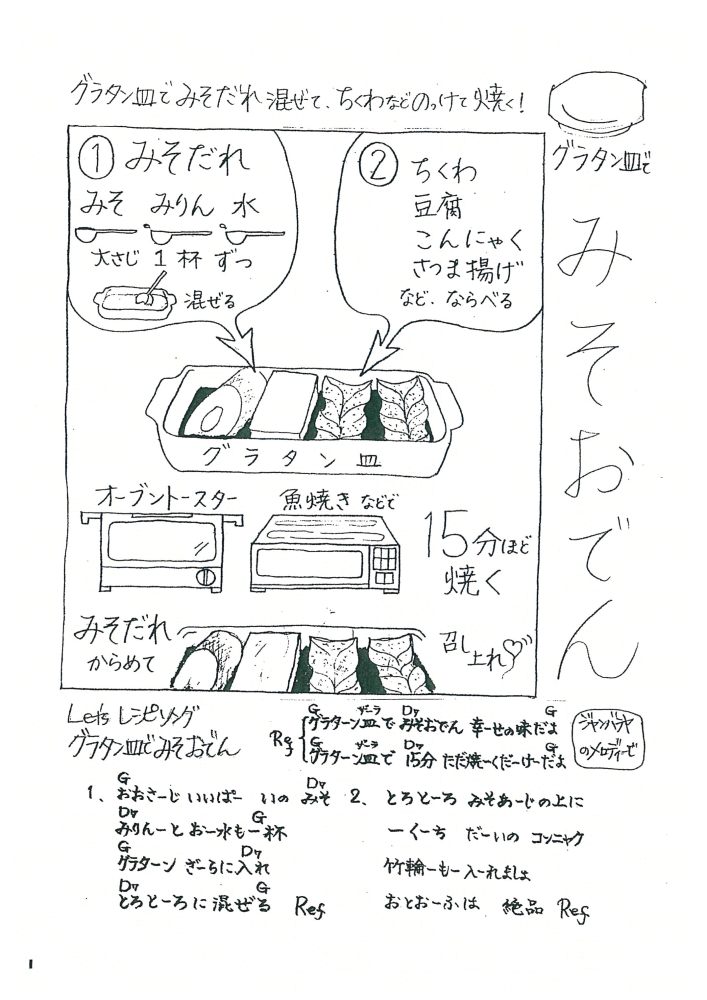 グラタン皿でみそだれ混ぜて、ちくわなどのっけて焼く!
グラタン皿で
みそおでん
① みそだれ
みそ みりん 水
大さじ 1 杯 ずつ
混ぜる
② ちくわ
豆腐
こんにゃく
さつま揚げ
など、ならべる
グラタン皿
オーブントースター
魚焼き などで
15分ほど
焼く
みそだれ
からめて
召し
上れ♡
Let's レシピソング
グラタン皿でみそおでん
Ref
G ザーラ D7 G
グラターン皿で みそおでん 幸ーせの味だよ
G ザーラ D7 G
グラターン皿で 15分 ただ焼ーくだーけーだよ
ジャンバラヤ
のメロディーで
G D7
1、おおさーじ いいぱー いの みそ
D7 G
みりんーと おー水もー杯
G D7
グラターン ざーらに入れ
D7 G
とろとーろに混ぜる Ref
2、とろとーろ みそあーじの上に
ーくーち だーいの コンニャク
竹輪ーもー入ーれましょ
おとおーふは 絶品 Ref
1